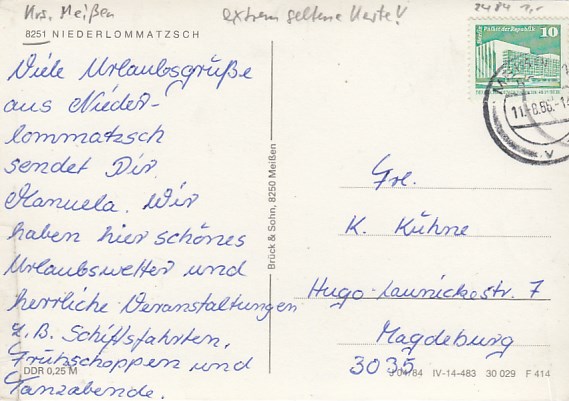 Krs. Meißen
extrem seltene Karte!
2484 1,-
8251 NIEDERLOMMATZSCH
10
Viele Urlaubsgrüße
aus Nieder-
lommatzsch
sendet Dir
Manuela. Wir
haben hier schönes
Urlaubswetter und
herrliche Veranstaltungen
z.B. Schiffsfahrten,
Frühschoppen und
Tanzabende.
DDR 0,25 M
Brück & Sohn, 8250 Meißen
Frl.
K. Kühne
Hugo-Launickestr. 7
Magdeburg
3035
04/84 IV-14-483 30 029 F 414